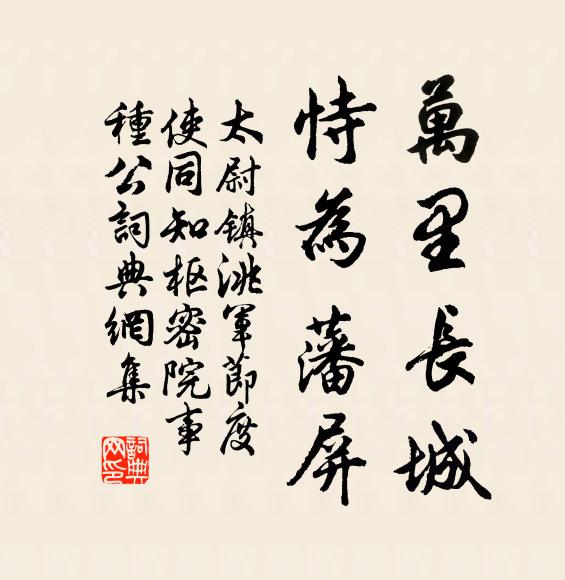 萬里長城
恃為藩屏
太尉鎮洮軍節度
使同知枢密院事
種公詞典網集
詞典网印